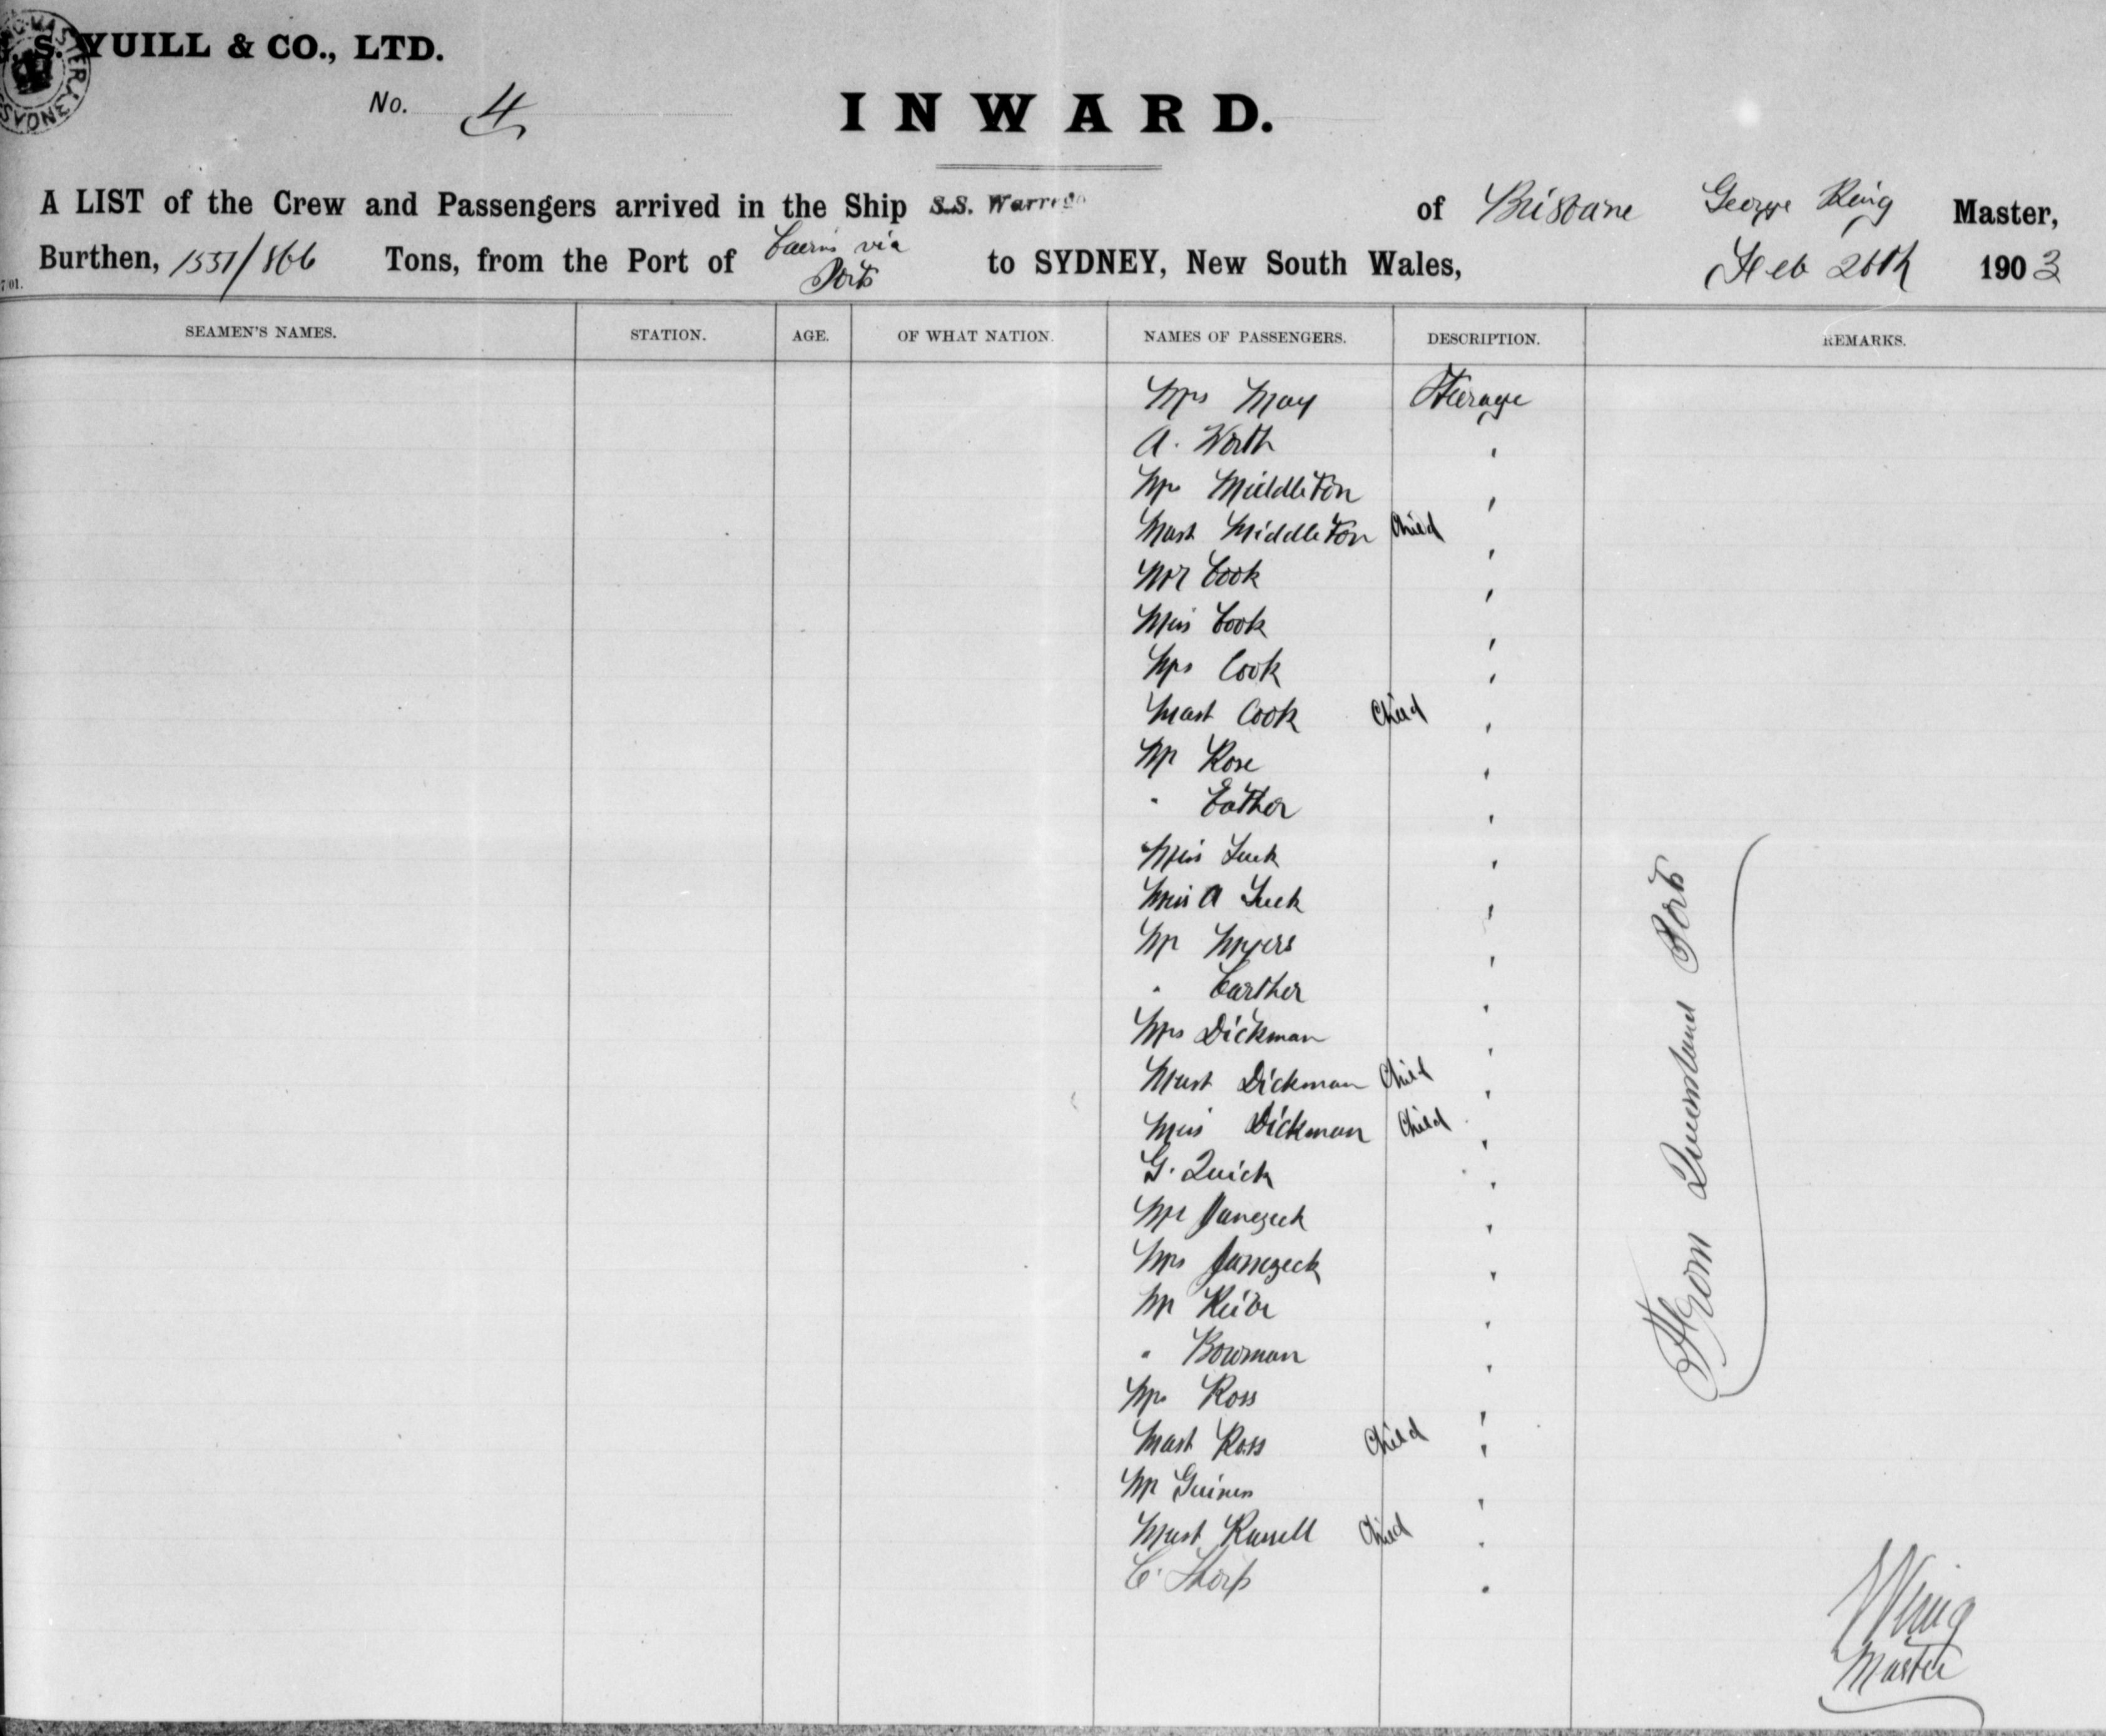 S. YUILL & CO., LTD.
No. 4
INWARD.
A LIST of the Crew and Passengers arrived in the Ship S.S. Warrego of Brisbane George King Master,
Burthen, 1551/866 Tons, from the Port of Cairns via Ports to SYDNEY, New South Wales, Feb 26th 1903
SEAMEN'S NAMES. STATION. AGE. OF WHAT NATION. NAMES OF PASSENGERS. DESCRIPTION. REMARKS.
Mrs May Steerage
A. Worth "
Mrs Middleton "
Mast Middleton Child "
Mr Cook "
Miss Cook "
Mrs Cook "
Mast Cook Child "
Mr Rose "
" "
Miss Luck "
Miss A Luck "
Mr Myers "
" Carther "
Mrs Dickman "
Mast Dickman Child "
Miss Dickman Child "
G. Quick "
Mr Janezeck "
Mrs Janezeck "
Mr "
" Bowman "
Mrs Ross "
Mast Ross Child "
Mr "
Mast Russell Child "
C. Thorp "
From Queensland Ports
King
Master